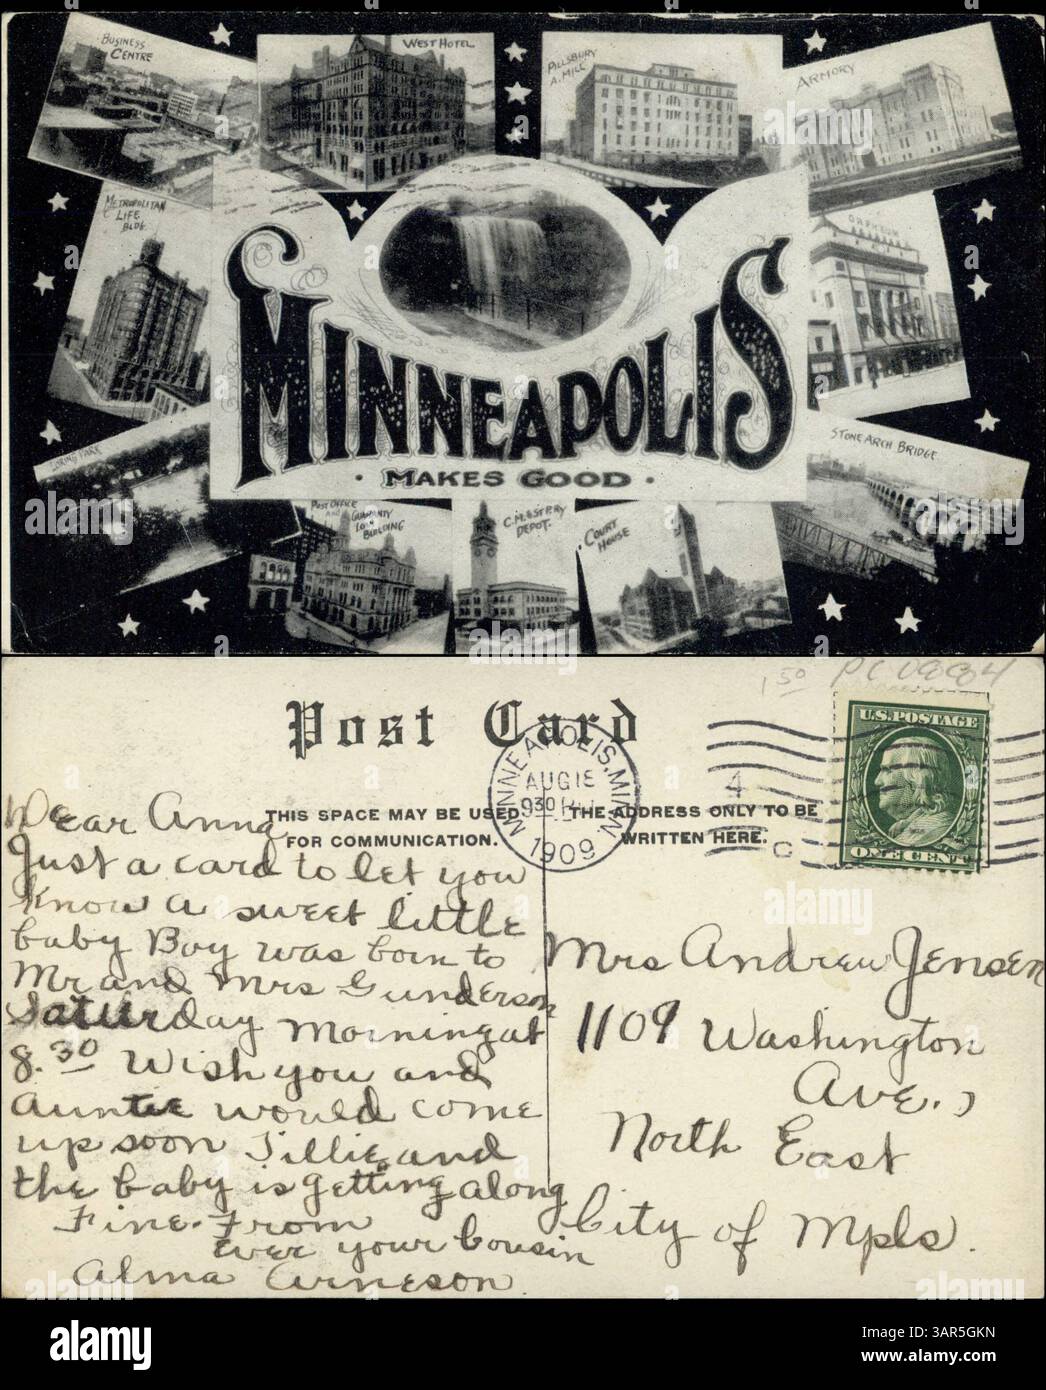 BUSINESS
CENTRE
WEST HOTEL
PILLSBURY
A. MILL
ARMORY
METROPOLITAN
LIFE
BLDG.
ORPHEUM
MINNEAPOLIS
· MAKES GOOD ·
LORING PARK
STONE ARCH BRIDGE
POST OFFICE
AND GUARANTY
LOAN
BUILDING
C.M.&ST.P.RY
DEPOT.
COURT
HOUSE
1 50 PC 0884
Post Card
U.S. POSTAGE
ONE CENT
MINNEAPOLIS, MINN.
AUG 18
9 30
1909
4
C
THIS SPACE MAY BE USED
FOR COMMUNICATION.
THE ADDRESS ONLY TO BE
WRITTEN HERE.
Dear Anna
Just a card to let you
know a sweet little
baby Boy was born to
Mr and Mrs Gunderson
Saturday Morning at
8.30 Wish you and
Auntie would come
up soon Tillie and
the baby is getting along
Fine. From
Ever your Cousin
Alma Arneson.
Mrs Andrew Jensen
1109 Washington
Ave.,
North East
City of Mpls.
alamy
Image ID: 3AR5GKN
www.alamy.com